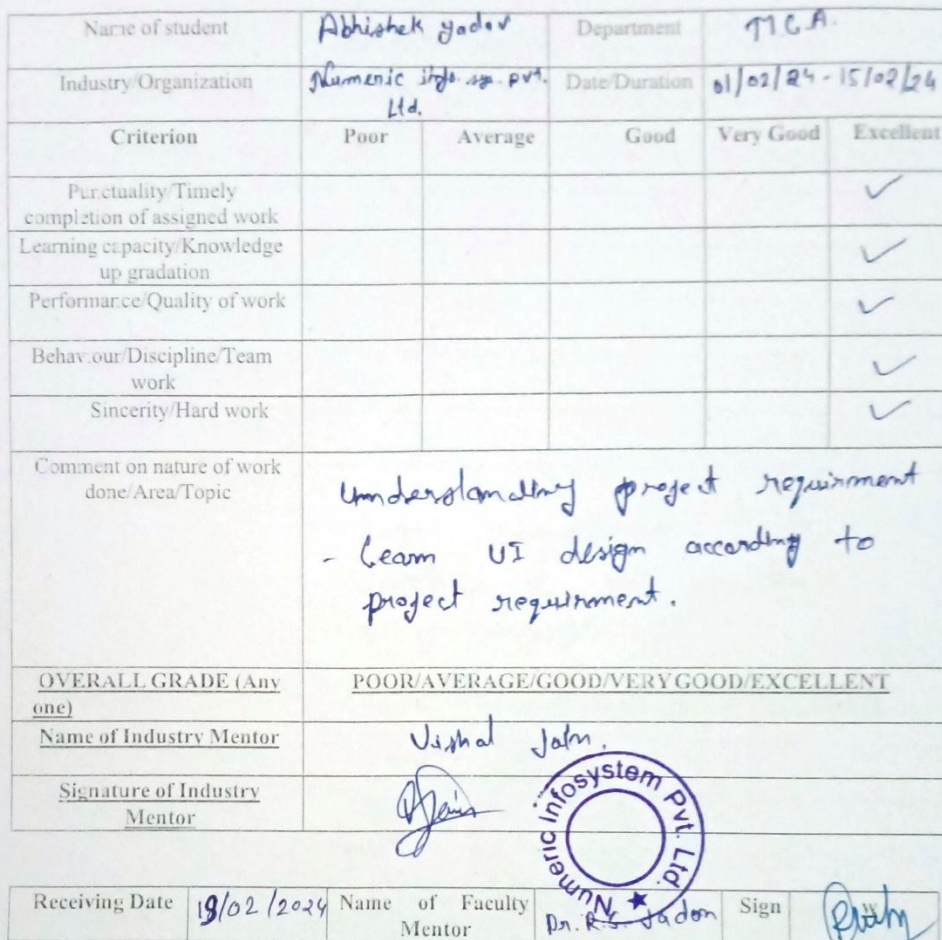 Name of student Abhishek yadav Department M.C.A.
Industry/Organization Numeric info. sys. pvt. Ltd. Date/Duration 01/02/24 - 15/02/24
Criterion Poor Average Good Very Good Excellent
Punctuality/Timely completion of assigned work ✓
Learning capacity/Knowledge up gradation ✓
Performance/Quality of work ✓
Behaviour/Discipline/Team work ✓
Sincerity/Hard work ✓
Comment on nature of work done/Area/Topic
Understanding project requirment
- learn UI design according to
project requirment.
OVERALL GRADE (Any one) POOR/AVERAGE/GOOD/VERY GOOD/EXCELLENT
Name of Industry Mentor Vishal Jain.
Signature of Industry Mentor
Numeric Infosystem Pvt. Ltd. ★
Receiving Date 19/02/2024 Name of Faculty Mentor Dr. R.S. Jadon Sign